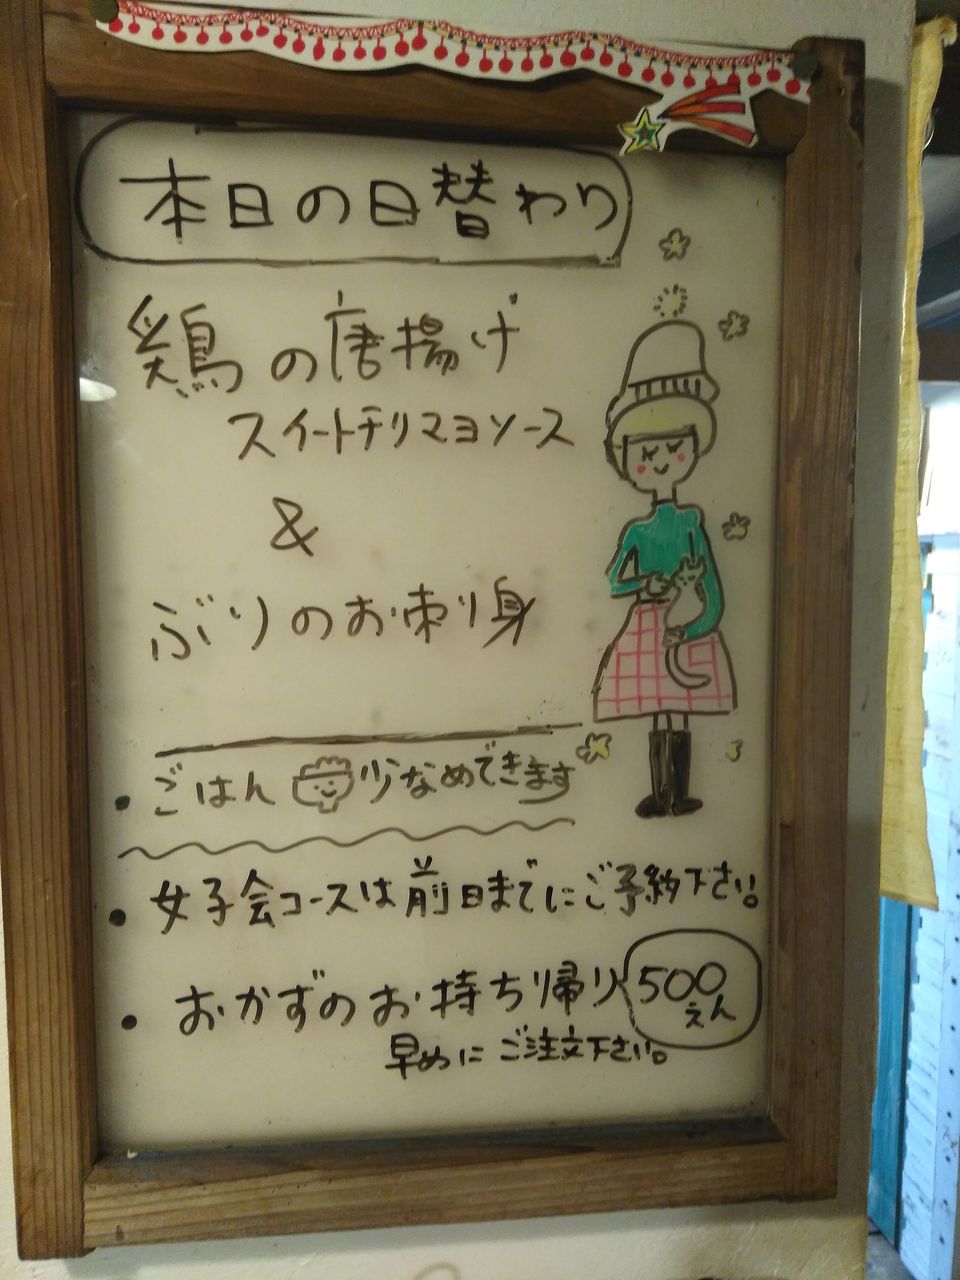 本日の日替わり
鶏の唐揚げ
スイートチリマヨソース
&
ぶりのお刺り身
・ごはん少なめできます
・女子会コースは前日までにご予約下さい。
・おかずのお持ち帰り500えん
早めにご注文下さい。